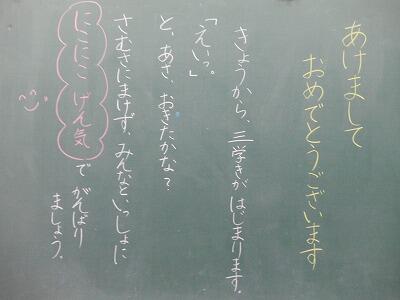 あけまして
おめでとうございます
きょうから、三学きがはじまります。
「えいっ。」
と、あさ、おきたかな？
さむさにまけず、みんなといっしょに
にこにこ げん気で がんばり
ましょう。